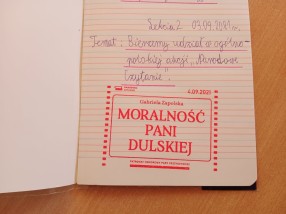 Lekcja 2 03.09.2021r.
Temat: Bierzemy udział w ogólno-
polskiej akcji „Narodowe
Czytanie".
4.09.2021
Gabriela Zapolska
MORALNOŚĆ
PANI
DULSKIEJ